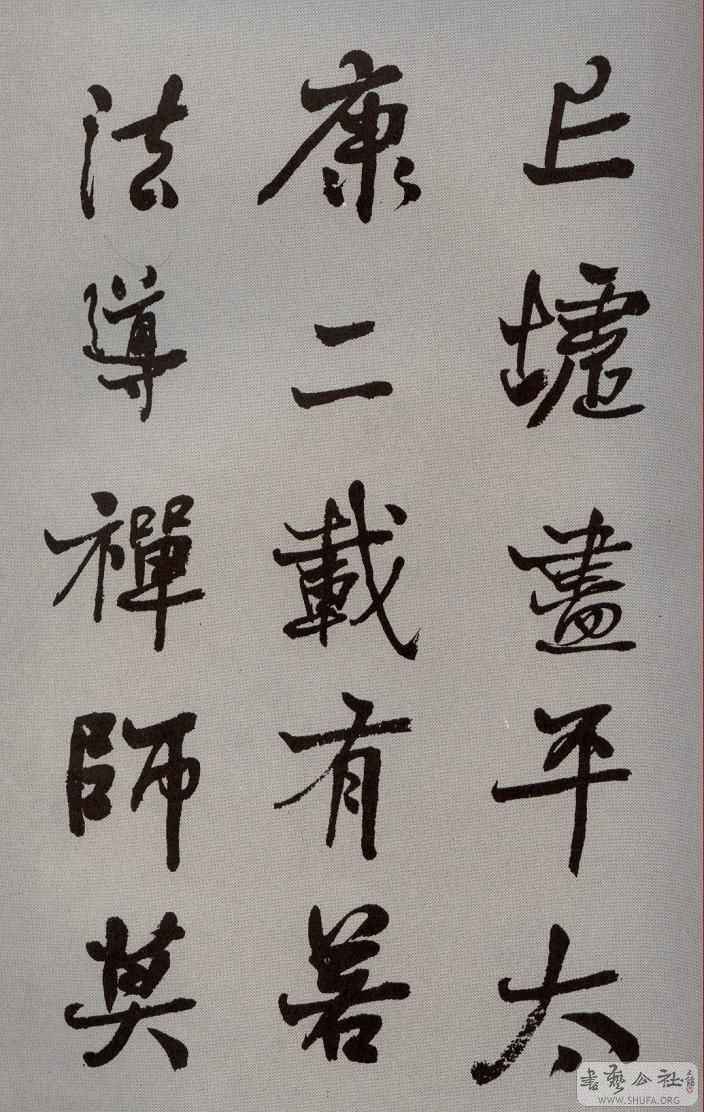 丘墟盡平太
康二載有若
法導禪師莫
書藝公社
WWW.SHUFA.ORG